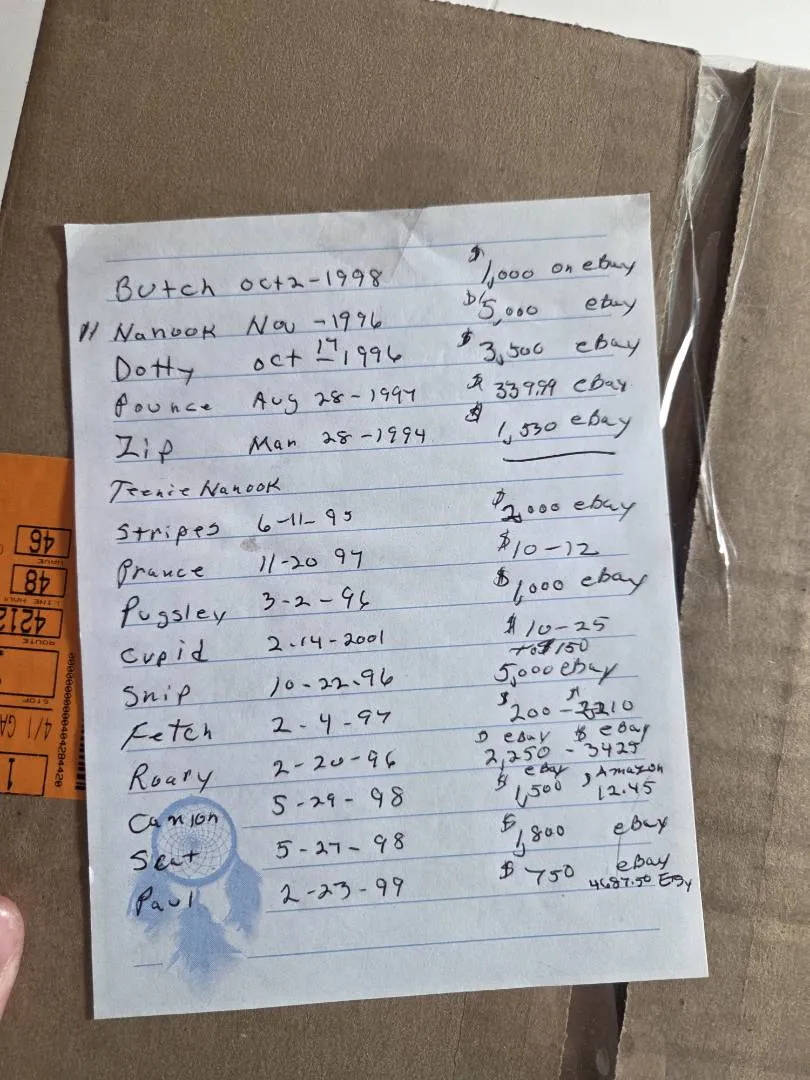 Butch oct 2-1998 $1,000 on ebay
11 Nanook Nov -1996 $5,000 ebay
Dotty oct 17 1996 $3,500 ebay
Pounce Aug 28-1997 $339.99 ebay
Zip Mar 28-1994 $1,530 ebay
Teenie Nanook
Stripes 6-11-95 $2,000 ebay
Prance 11-20 97 $10-12
Pugsley 3-2-96 $1,000 ebay
Cupid 2-14-2001 $10-25
to $150
Snip 10-22-96 5,000 ebay
Fetch 2-4-97 $200-$
$ ebay $ ebay
Roary 2-20-96 2,250 - 3425
$ ebay, Amazon
5-29-98 1,500 12.45
Scat 5-27-98 $1,800 ebay
Paul 2-23-99 $750 ebay
4687.50 
46
48
LINE HAUL
4212
ROUTE
STOP
4/1 GA
1